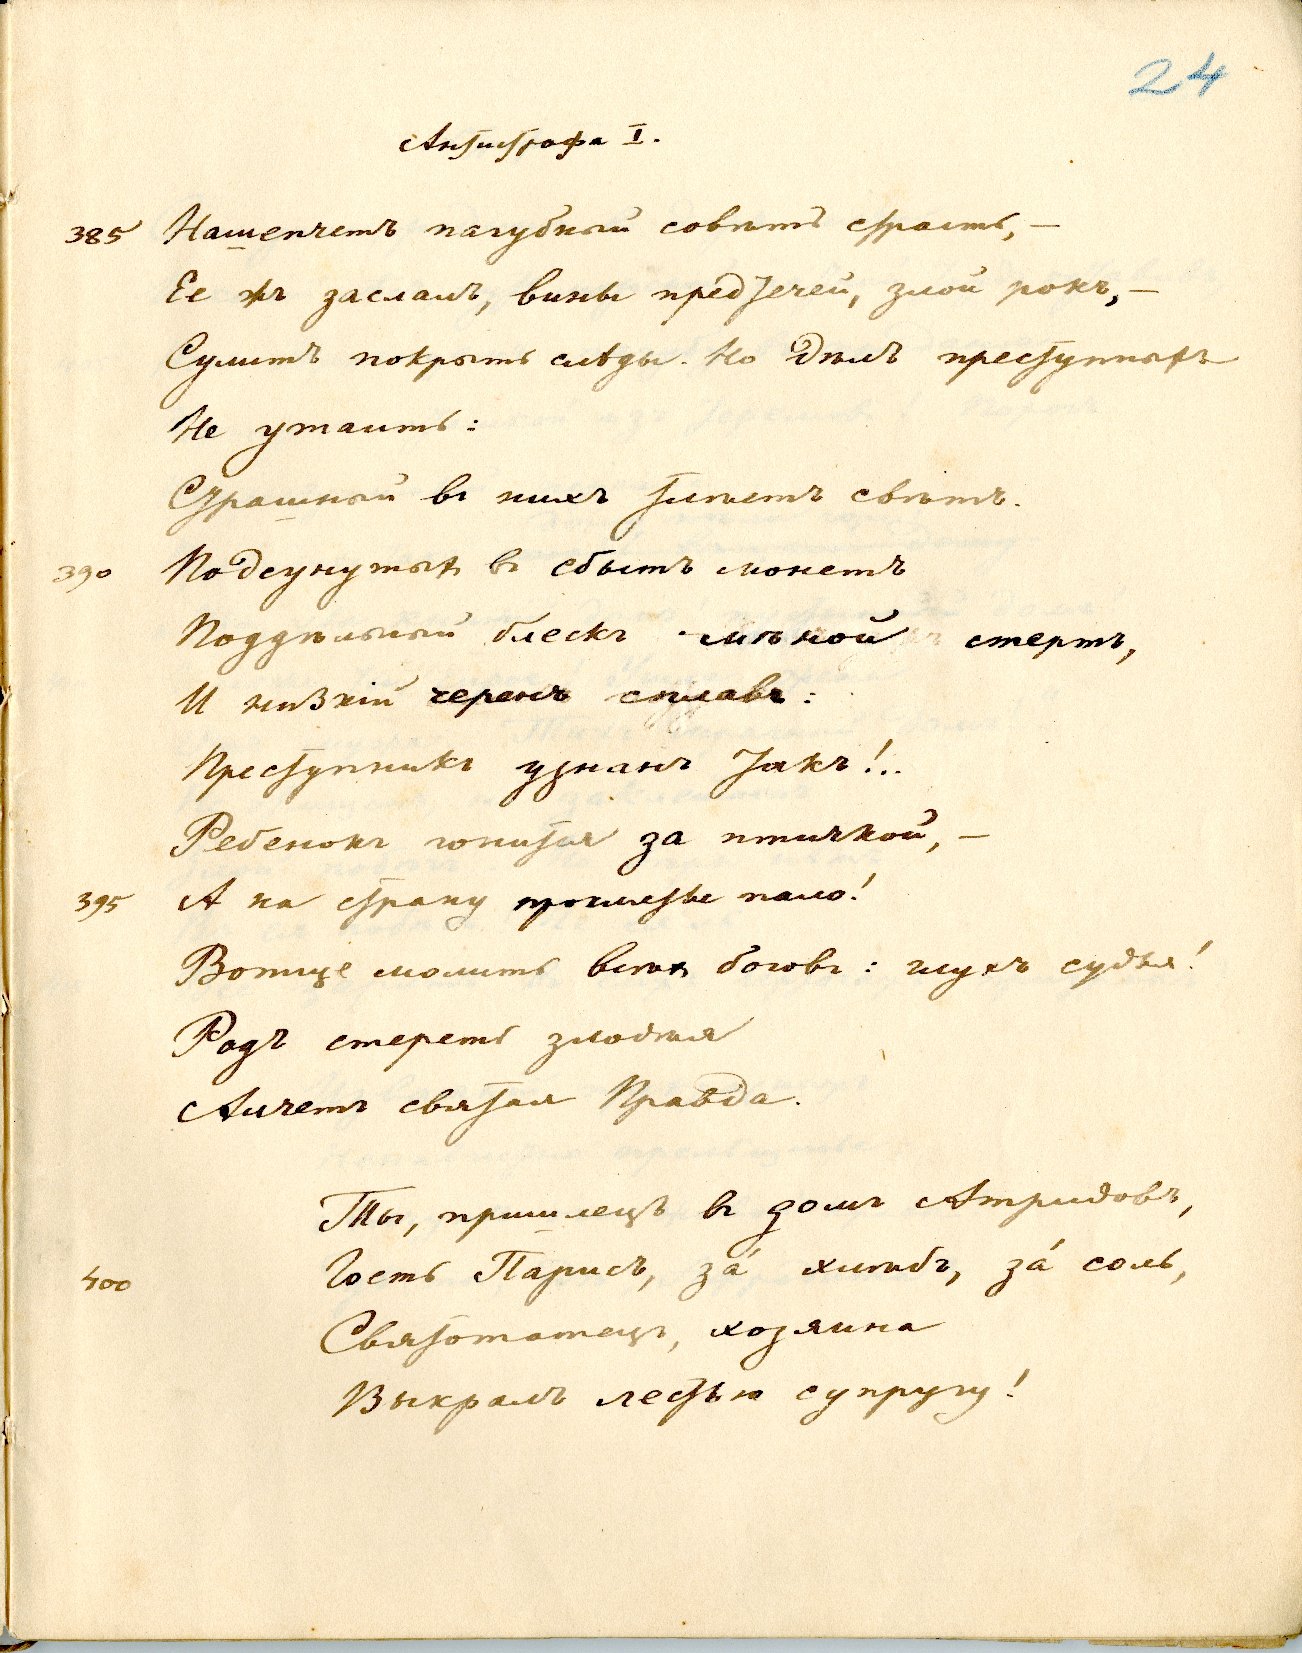 24
Антистрофа I.
385 Нашепчетъ пагубный совѣтъ страсть, —
Ее жъ заслалъ, вины предтечей, злой рокъ, —
Сулитъ покрыть слѣды. Но дѣлъ преступныхъ
Не утаить:
Страшный въ нихъ тлѣетъ свѣтъ.
390 Подсунутыхъ въ сбытъ монетъ
Поддѣльный блескъ мѣной стертъ,
И низкій черенъ сплавъ:
Преступникъ узнанъ такъ!..
Ребенокъ гонится за птичкой, —
395 А на страну проклятье пало!
Вотще молить всѣхъ боговъ: глухъ судья!
Родъ стереть злодѣя
Алчетъ святая Правда.
Ты, пришлецъ въ домъ Атридовъ,
400 Гость Парисъ, за́ хлѣбъ, за́ соль,
Святотатецъ, хозяина
Выкралъ лестью супругу!